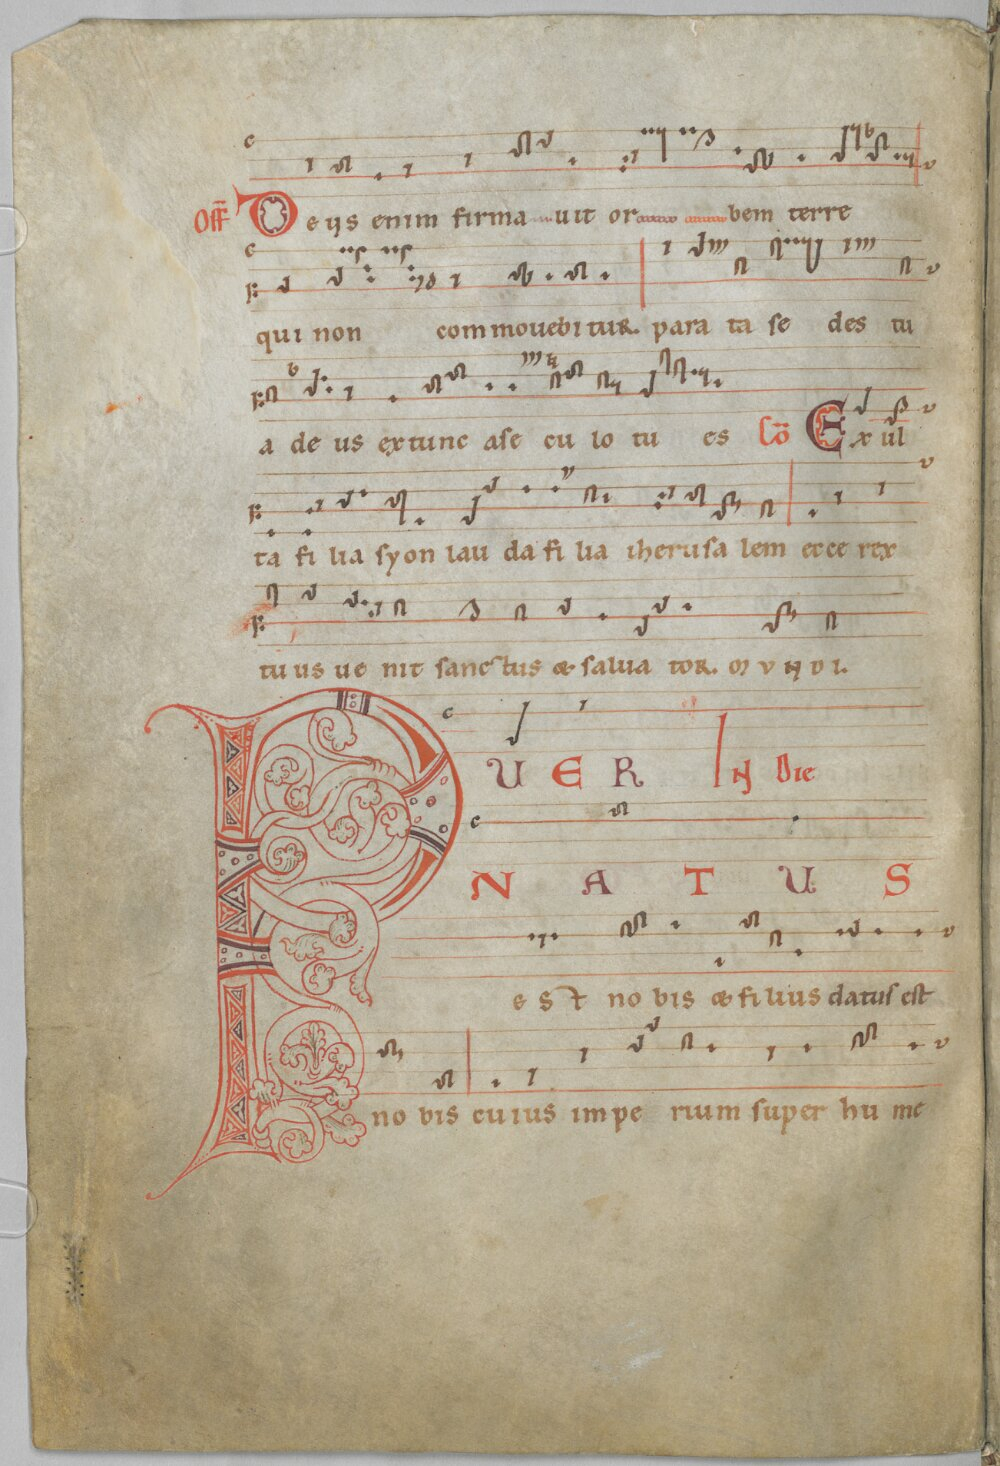 Off̄ De ijs enim firma uit or bem terre
qui non commouebitur. para ta se des tu
a de us extunc ase cu lo tu es Cō Exul
ta fi lia syon lau da fi lia iherusa lem ecce rex
tu us ue nit sanctus & salua tor. MVNDI.
PUER IN Die
NATUS
EST no bis & filius datus est
no bis cuius impe rium super hu me